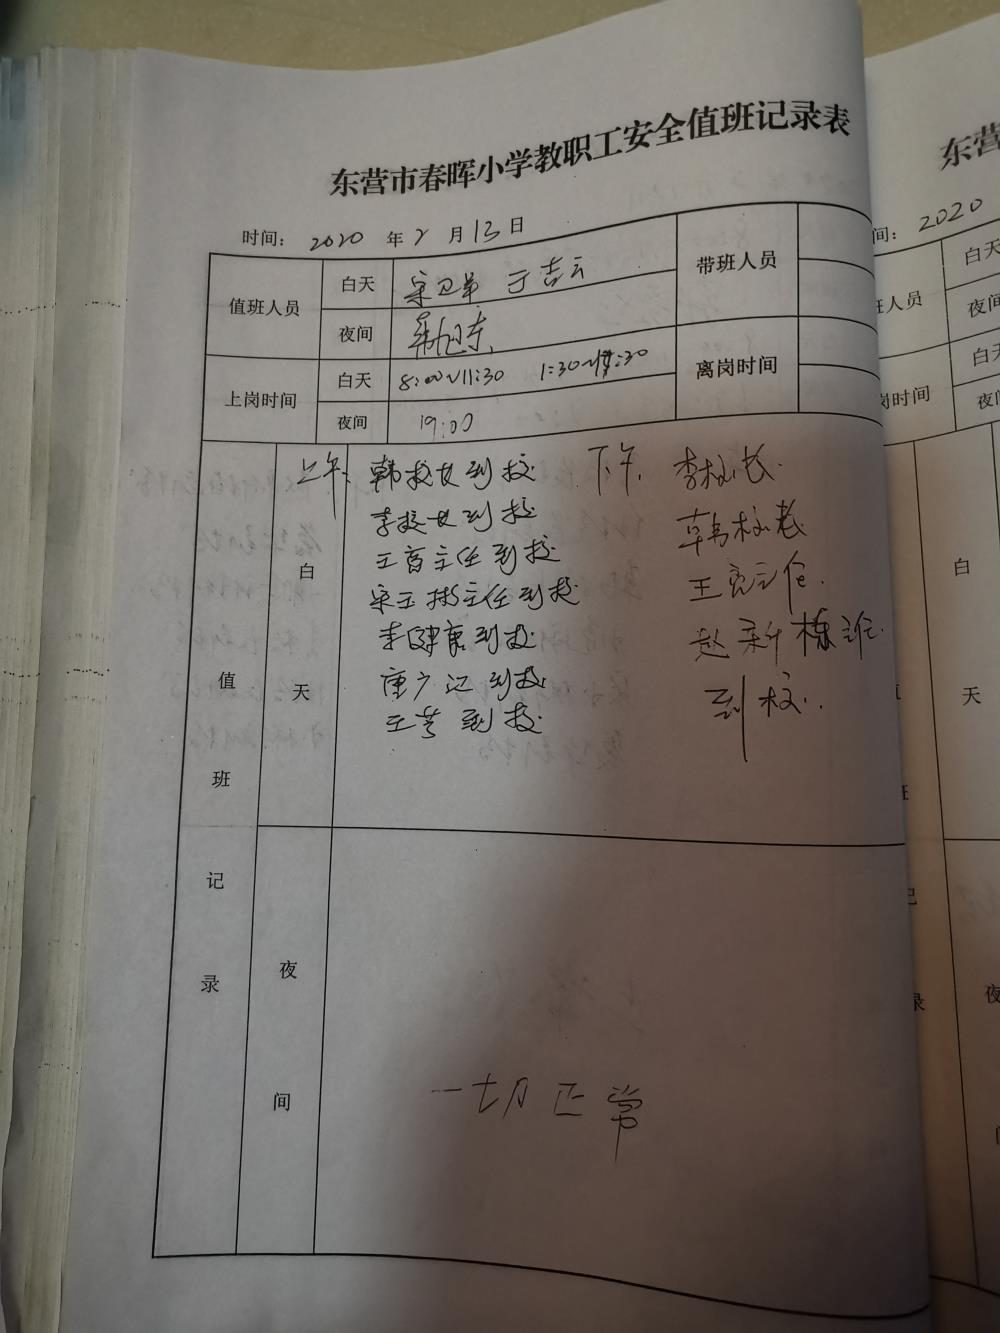 东营市春晖小学教职工安全值班记录表
东营
时间： 2020 年 2 月 13 日
间： 2020
值班人员 白天 宋卫华 于吉云 带班人员
夜间
人员 白天
夜间
上岗时间 白天 8:00~11:30 1:30~ :30 离岗时间
夜间 19:00
岗时间 白天
夜间
上午 韩校长到校 下午 李校长
李校长到校 韩校长
主任到校 王 主任
宋玉彬主任到校 赵新栋
李健康到校 到校
唐广江到校
王芳到校
白天
值班记录
夜间
一切正常
白
天
夜